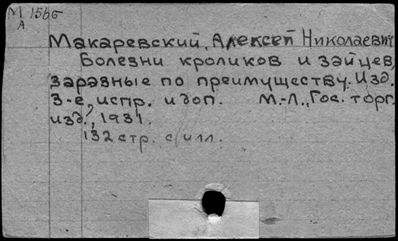 М 1566
А
Макаревский, Алексей Николаевич
Болезни кроликов и зайцев,
заразные по преимуществу. Изд.
3-е, испр. и доп. М.-Л., Гос. торг.
изд., 1931.
132 стр. с илл.